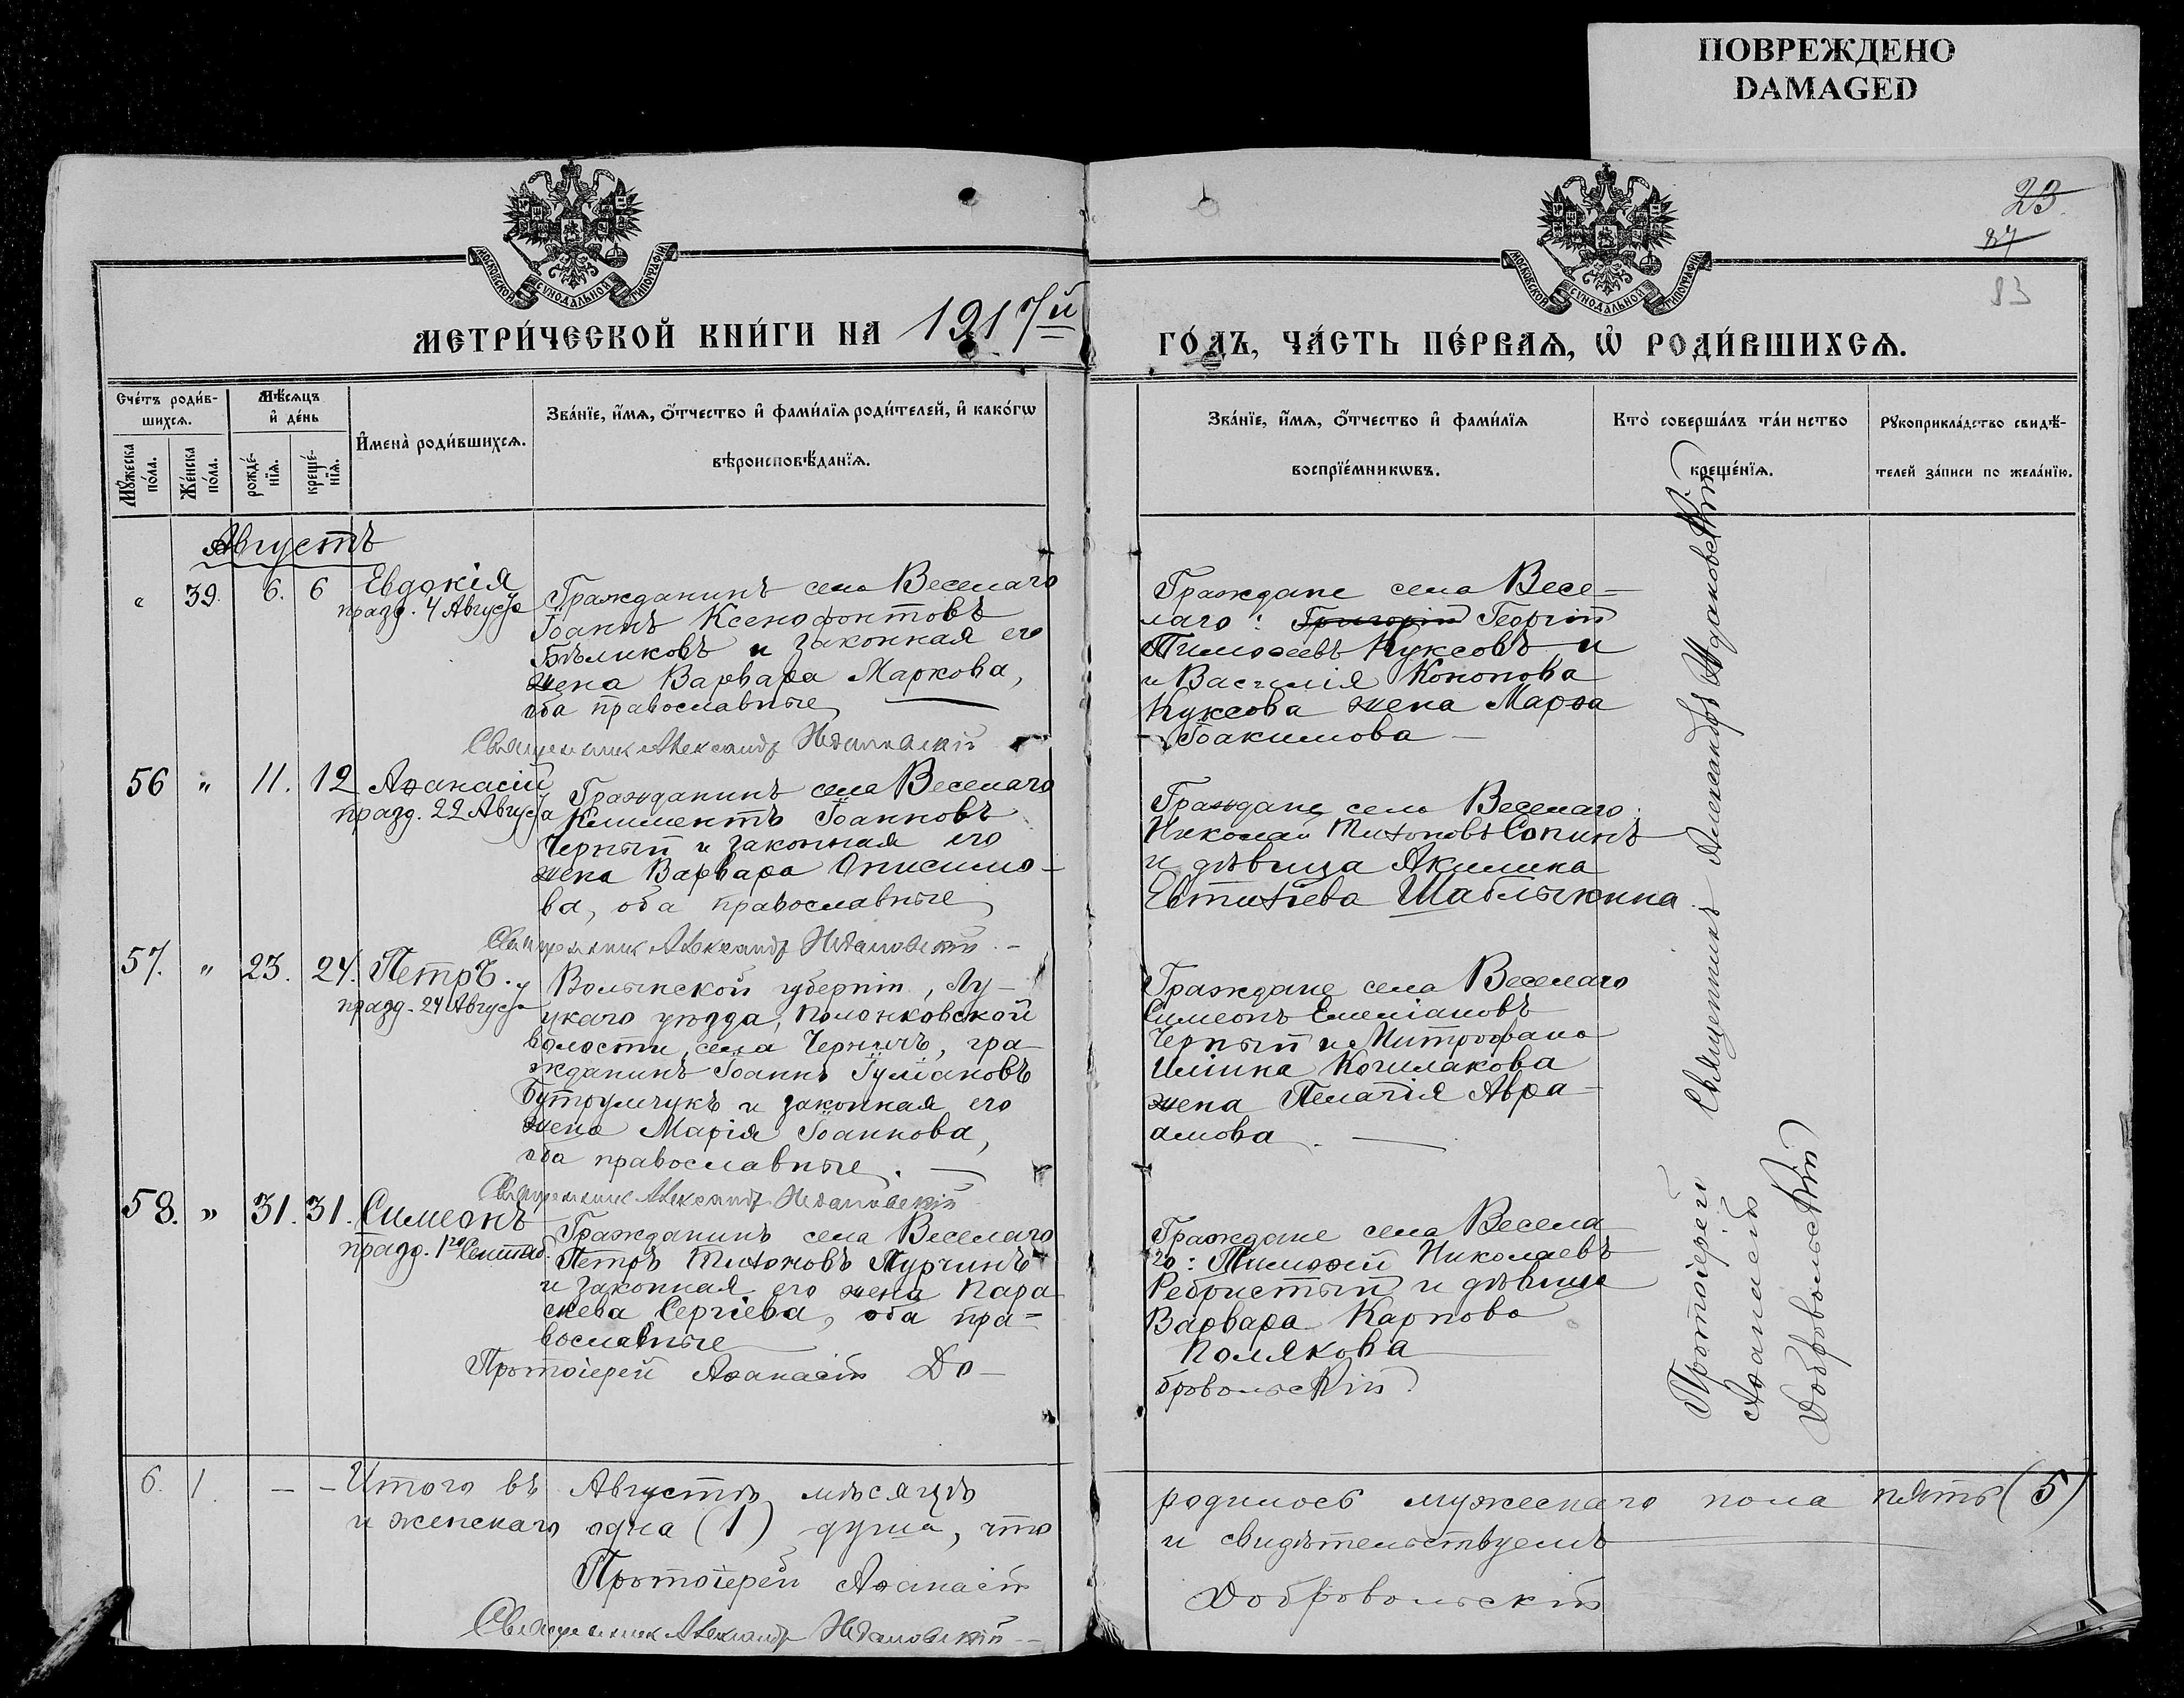 ПОВРЕЖДЕНО
DAMAGED
23.
87
83
МОСКОВСКОЙ СѴНОДАЛЬНОЙ ТИПОГРАФІИ
МОСКОВСКОЙ СѴНОДАЛЬНОЙ ТИПОГРАФІИ
МЕТРИ́ЧЕСКОЙ КНИ́ГИ НА 1917й
ГО́ДЪ, ЧА́СТЬ ПЕ́РВАѦ, Ѡ҆ РОДИ́ВШИХСѦ.
Сче́тъ роди́в-
шихсѧ.
Мꙋ́жеска по́ла.
Же́нска по́ла.
Мѣ́сѧцъ
и҆ де́нь
рожде́-
нїѧ.
креще́-
нїѧ.
И҆мена̀ роди́вшихсѧ.
Зва́нїе, и҆́мѧ, о҆́тчество и҆ фами́лїѧ роди́телей, и҆ како́гѡ
вѣроисповѣ́данїѧ.
Зва́нїе, и҆́мѧ, о҆́тчество и҆ фами́лїѧ
воспрїе́мникѡвъ.
Кто̀ соверша́лъ та́инство
креще́нїѧ.
Рꙋкоприкла́дство свидѣ́-
телей за́писи по жела́нїю.
Августъ
" 39. 6. 6 Евдокія
празд. 4 Августа
Гражданинъ села Веселаго
Іоаннъ Ксенофонтовъ
Бѣликовъ и законная его
жена Варвара Маркова,
оба православные
Священник Александр Ждановскій
Граждане села Весе-
лаго: Григорій Георгій
Тимоѳеевъ Куксовъ и
и Василія Кононова
Куксова жена Марѳа
Іоакимова
56 " 11. 12 Аѳанасій
празд. 22 Августа
Гражданинъ села Веселаго
Климентъ Іоанновъ
Черный и законная его
жена Варвара Онисимо-
ва, оба православные
Священник Александр Ждановскій
Граждане села Веселаго:
Николай Тихоновъ Сопинъ
и дѣвица Акилина
Евтихіева Шаблыкина
57. " 23. 24. Петръ.
празд. 24 Августа
Волынской губерніи, Лу-
цкаго уѣзда, Полонковской
волости, села Чернчъ, гра-
жданинъ Іоаннъ Іуліановъ
Бутрумчукъ и законная его
жена Марія Іоаннова,
оба православные.
Священник Александр Ждановскій
Граждане села Веселаго
Симеонъ Емеліановъ
Черный и Митрофана
Ильина Кочмакова
жена Пелагія Авра-
амова.
58. " 31. 31. Симеонъ
празд. 1го Сентяб.
Гражданинъ села Веселаго
Петръ Тихоновъ Пурчинъ
и законная его жена Пара
скева Сергіева, оба пра-
вославные
Протоіерей Аѳанасій До-
Граждане села Весела
го: Тимоѳей Николаевъ
Ребристый и дѣвица
Варвара Карпова
Полякова
бровольскій
Священникъ Александръ Ждановскій
Протоіерей
Аѳанасій
Добровольскій
6. 1. – – Итого въ Августѣ мѣсяцѣ
родилось мужескаго пола пять (5)
и женскаго одна (1) душа, что
и свидѣтельствуемъ
Протоіерей Аѳанасій
Добровольскій
Священник Александр Ждановскій